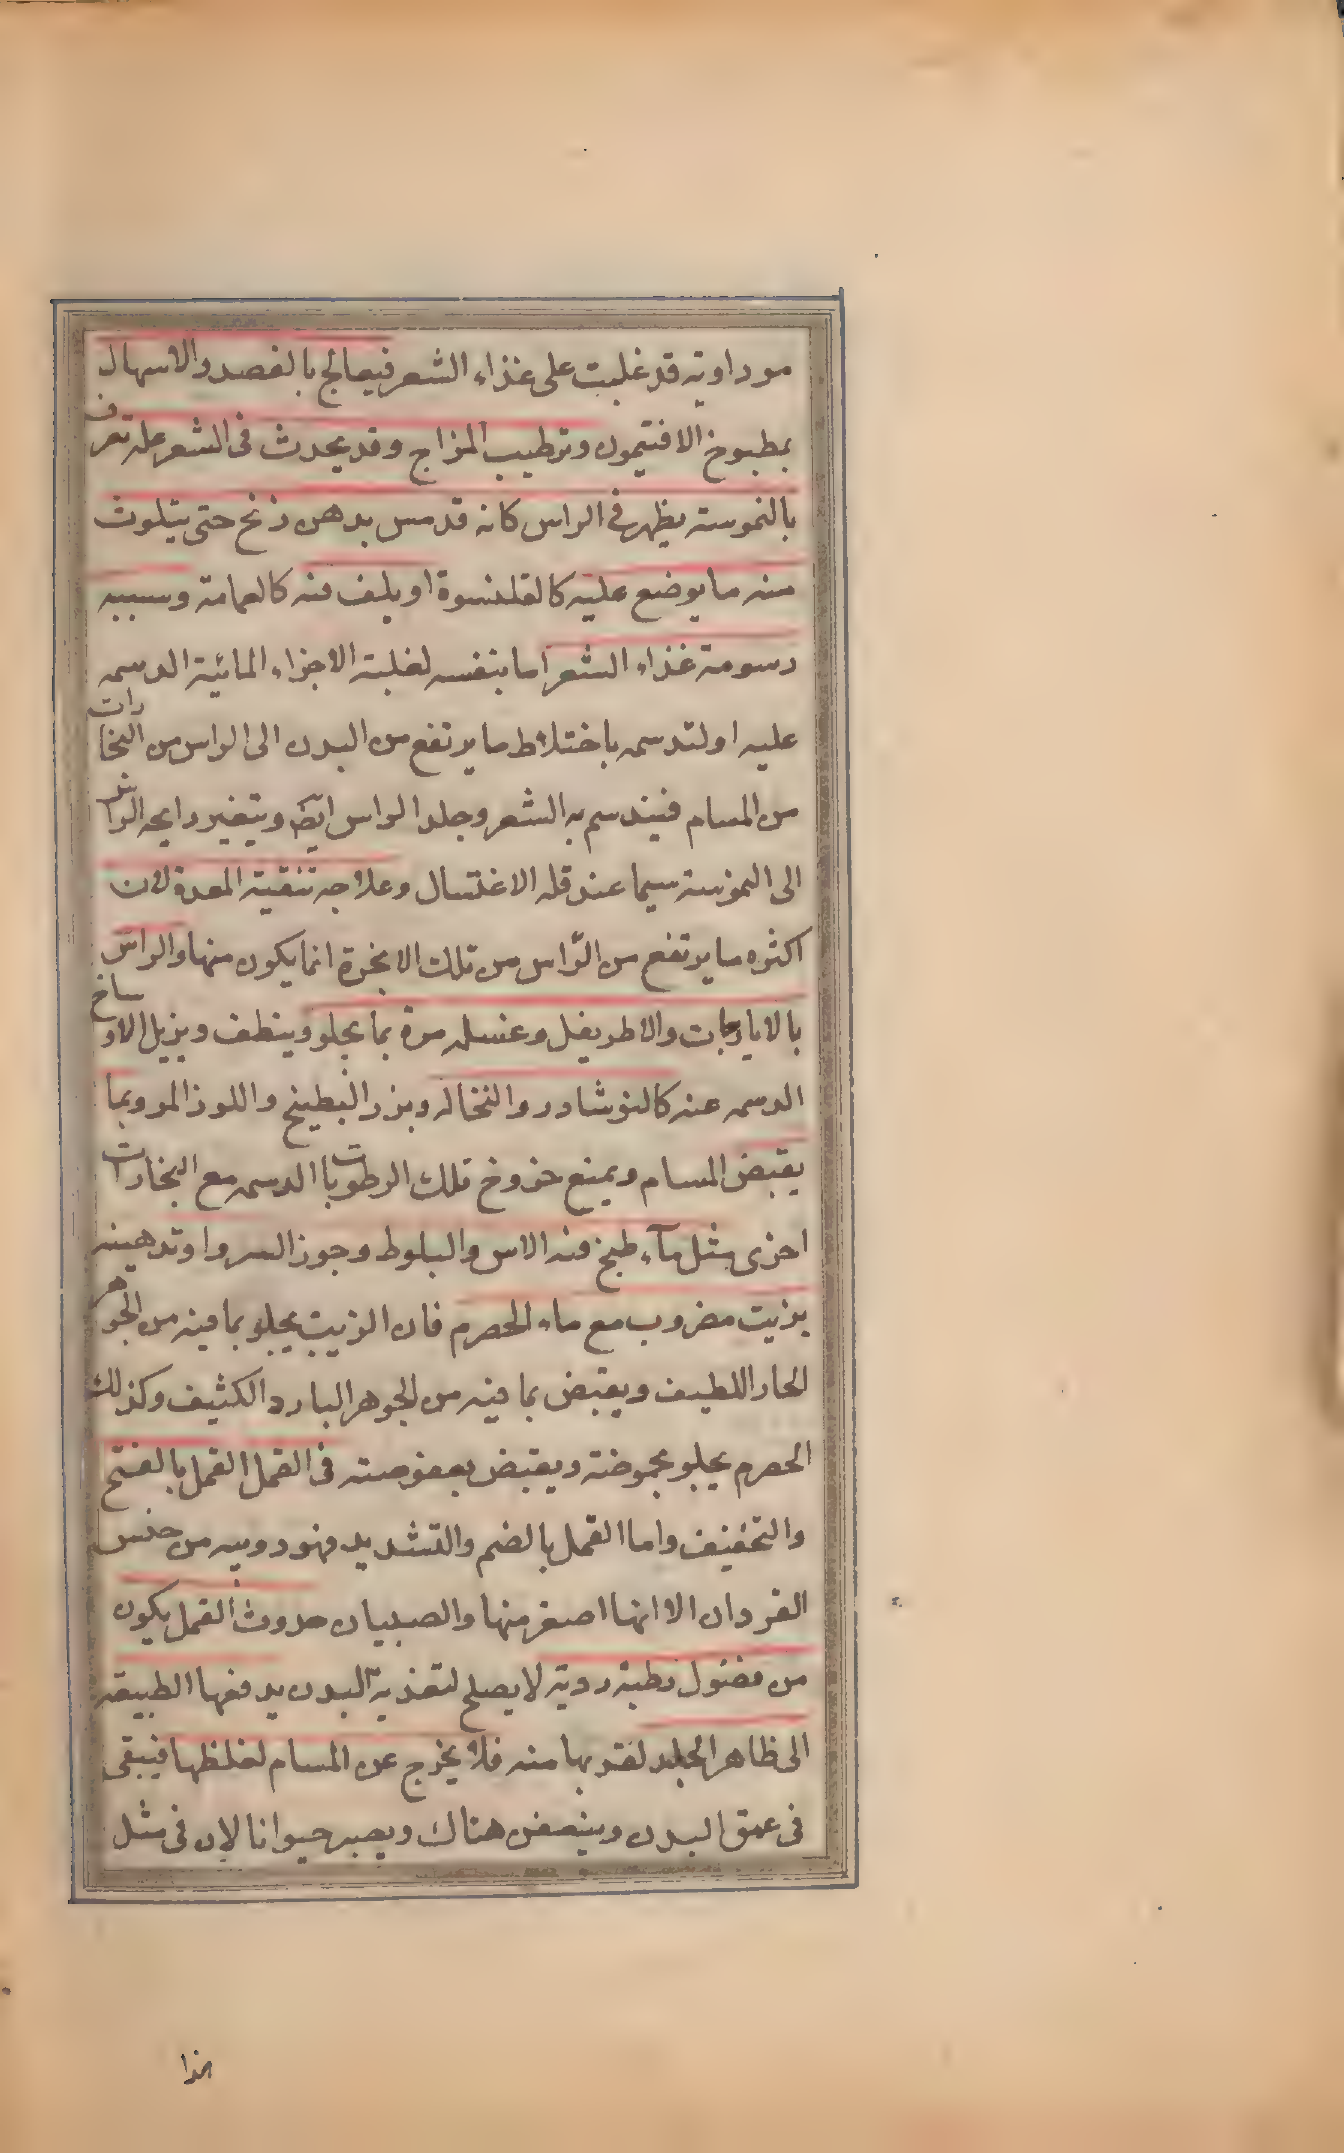 سوداوية قد غلبت على غذاء الشعر فيعالج بالفصد والاسهال
بمطبوخ الافتيمون وترطيب المزاج وقد يحدث فى الشعر علة تعرف
بالنموسة يظهر فى الراس كانه قد مس بدهن زنخ حتى يتلوث
منه ما يوضع عليه كالقلنسوة او يلف منه كالعمامة وسببه
دسومة غذاء الشعر اما بنفسه لغلبة الاجزاء المائية الدسمه
عليه او لتدسمه باختلاط ما يرتفع من البدن الى الراس من البخارات
من المسام فيندسم به الشعر وجلد الراس ايضا ويتغير رايحه الراس
الى النموسة سيما عند قله الاغتسال وعلاجه تنقية المعدة لان
اكثره ما يرتفع من الرّاس من تلك الابخرة انما يكون منها والراس
بالايارجات والاطريفل وغسله مرة بما يجلو وينظف ويزيل الاوساخ
الدسمه عنه كالنوشادر والنخاله وبزر البطيخ واللوز المر وبما
يقبض المسام ويمنع خروج تلك الرطوبات الدسمه مع البخارات
اخرى مثل مآء طبخ فيه الاس والبلوط وجوز السرو او تدهينه
بزيت مضروب مع ماء الحصرم فان الزيت يجلو بما فيه من الجوهر
الحار اللطيف ويقبض بما فيه من الجوهر البارد الكثيف وكذلك
الحصرم يجلو بحموضته ويقبض بعفوصته فى القمل القمل بالفتح
والتخفيف واما القمل بالضم والتشديد فهو دويبه من جنس
القردان الا انها اصغر منها والصيبان حدوث القمل يكون
من فضول رطبة ردية لا يصلح لتغذية البدن يدفعها الطبيعة
الى ظاهر الجلد لقربها منه فلا يخرج عن المسام لغلظها فيبقى
فى عمق البدن ويتعفن هناك ويصير حيوانا لان فى مثل
هذا